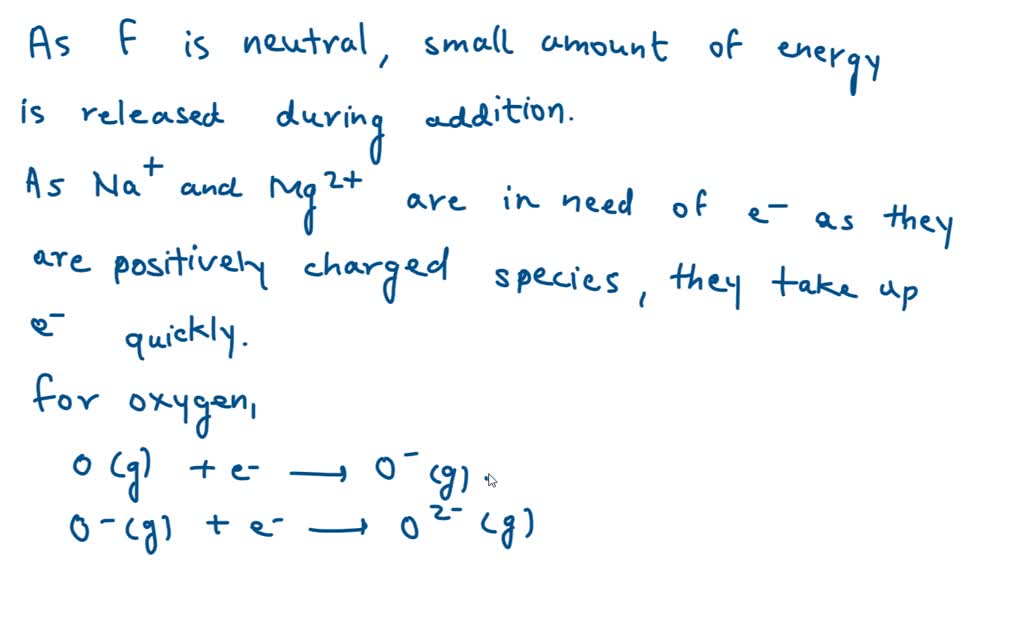 As F is neutral, small amount of energy
is released during addition.
As Na⁺ and Mg²⁺ are in need of e⁻ as they
are positively charged species, they take up
e⁻ quickly.
For oxygen,
O (g) + e⁻ ⟶ O⁻ (g)
O⁻(g) + e⁻ ⟶ O²⁻ (g)